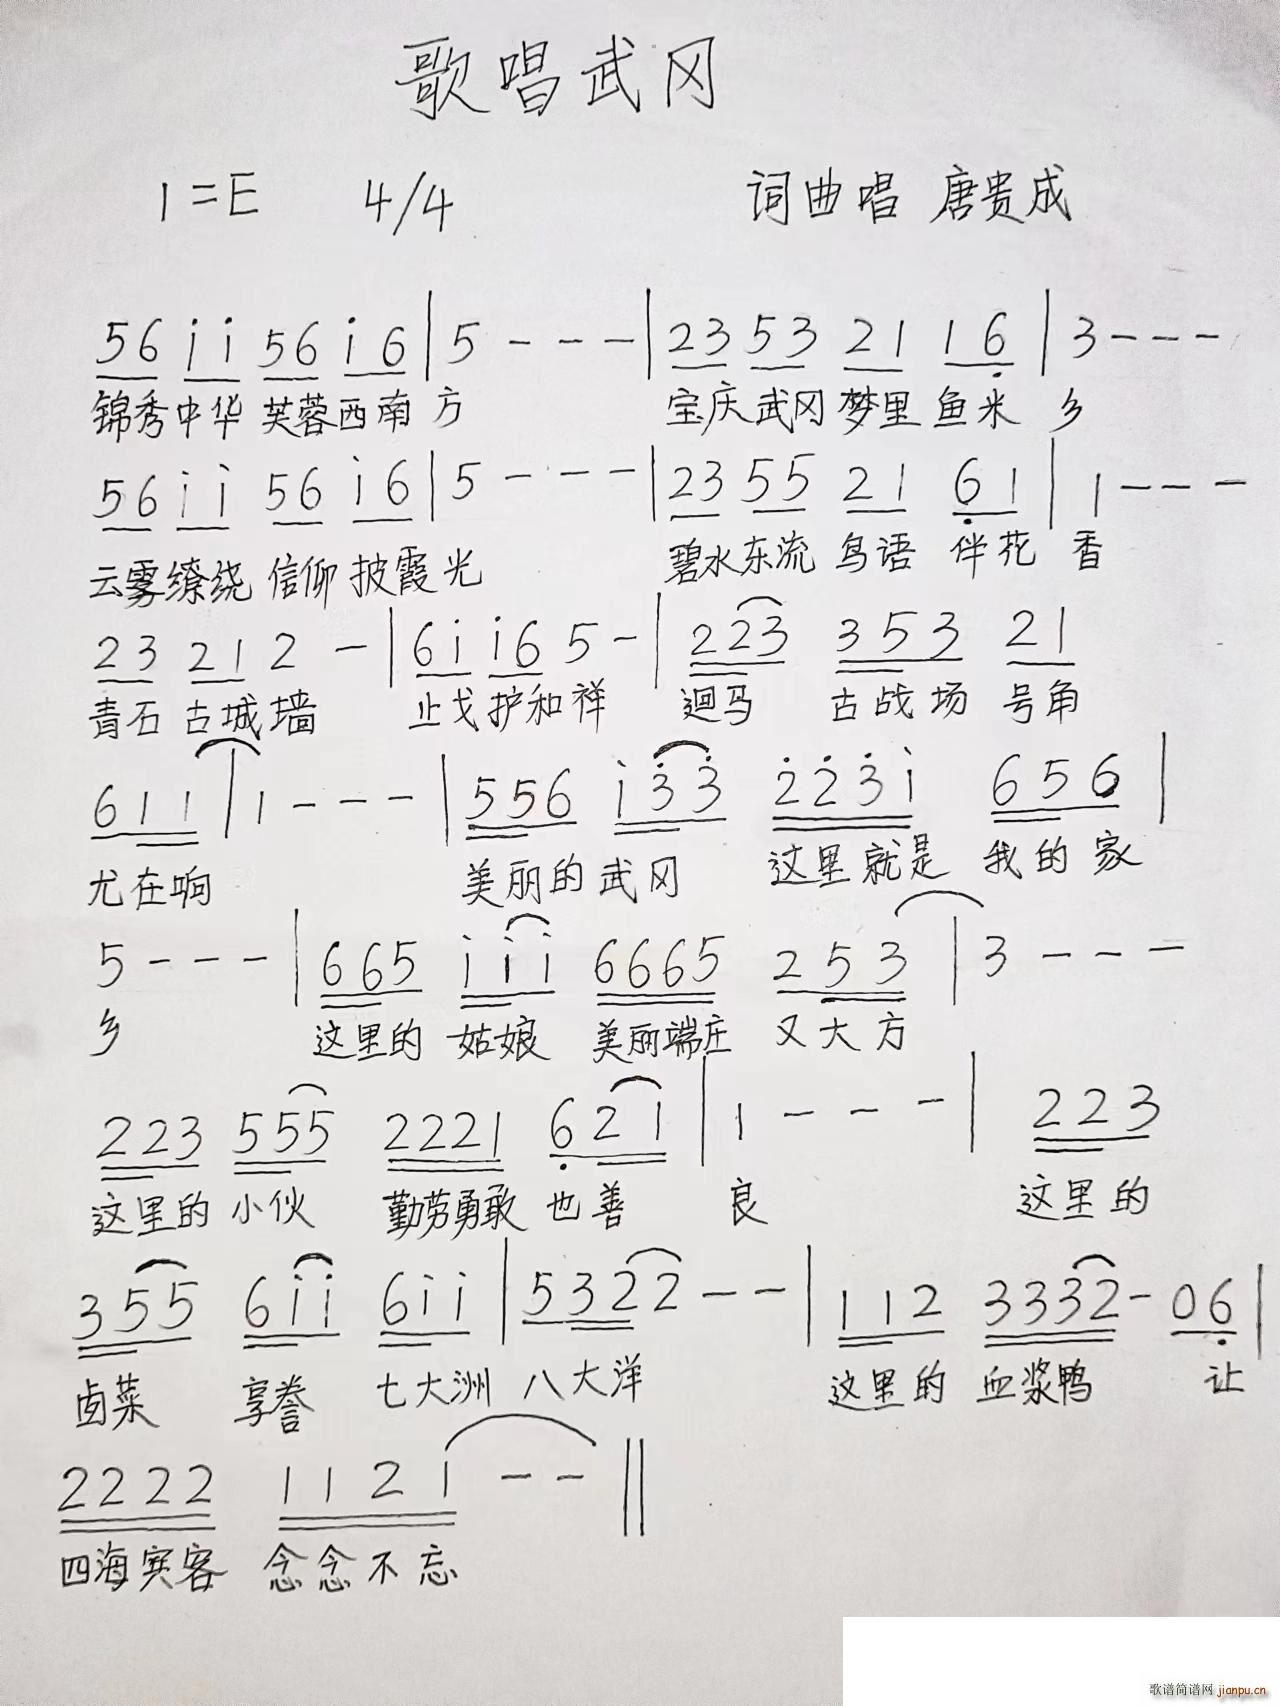 歌唱武冈
1=E 4/4 词曲唱 唐贵成
56 i̇i̇ 56 i̇6 | 5 - - - | 23 53 21 16̣ | 3 - - -
锦秀中华 芙蓉西南 方 宝庆武冈 梦里 鱼米 乡
56 i̇i̇ 56 i̇6 | 5 - - - | 23 55 21 6̣1 | 1 - - -
云雾缭绕 信仰 披霞光 碧水东流 鸟语 伴花 香
23 21 2 - | 6i̇ i̇6 5 - | 223 353 21
青石 古城墙 止戈护和祥 迴马 古战场 号角
611 | 1 - - - | 556 i̇3̇3̇ 2̇2̇3̇i̇ 656 |
尤在响 美丽的武冈 这里就是 我的家
5 - - - | 665 i̇i̇i̇ 6665 253 | 3 - - -
乡 这里的 姑娘 美丽端庄 又大方
223 555 2221 6̣21 | 1 - - - | 223
这里的 小伙 勤劳勇敢 也善 良 这里的
355 6i̇i̇ 6i̇i̇ | 5322 - - | 112 3332 - 06̣ |
卤菜 享誉 七大洲 八大洋 这里的 血浆鸭 让
2222 1121 - - ‖
四海宾客 念念不忘
歌谱简谱网 jianpu.cn